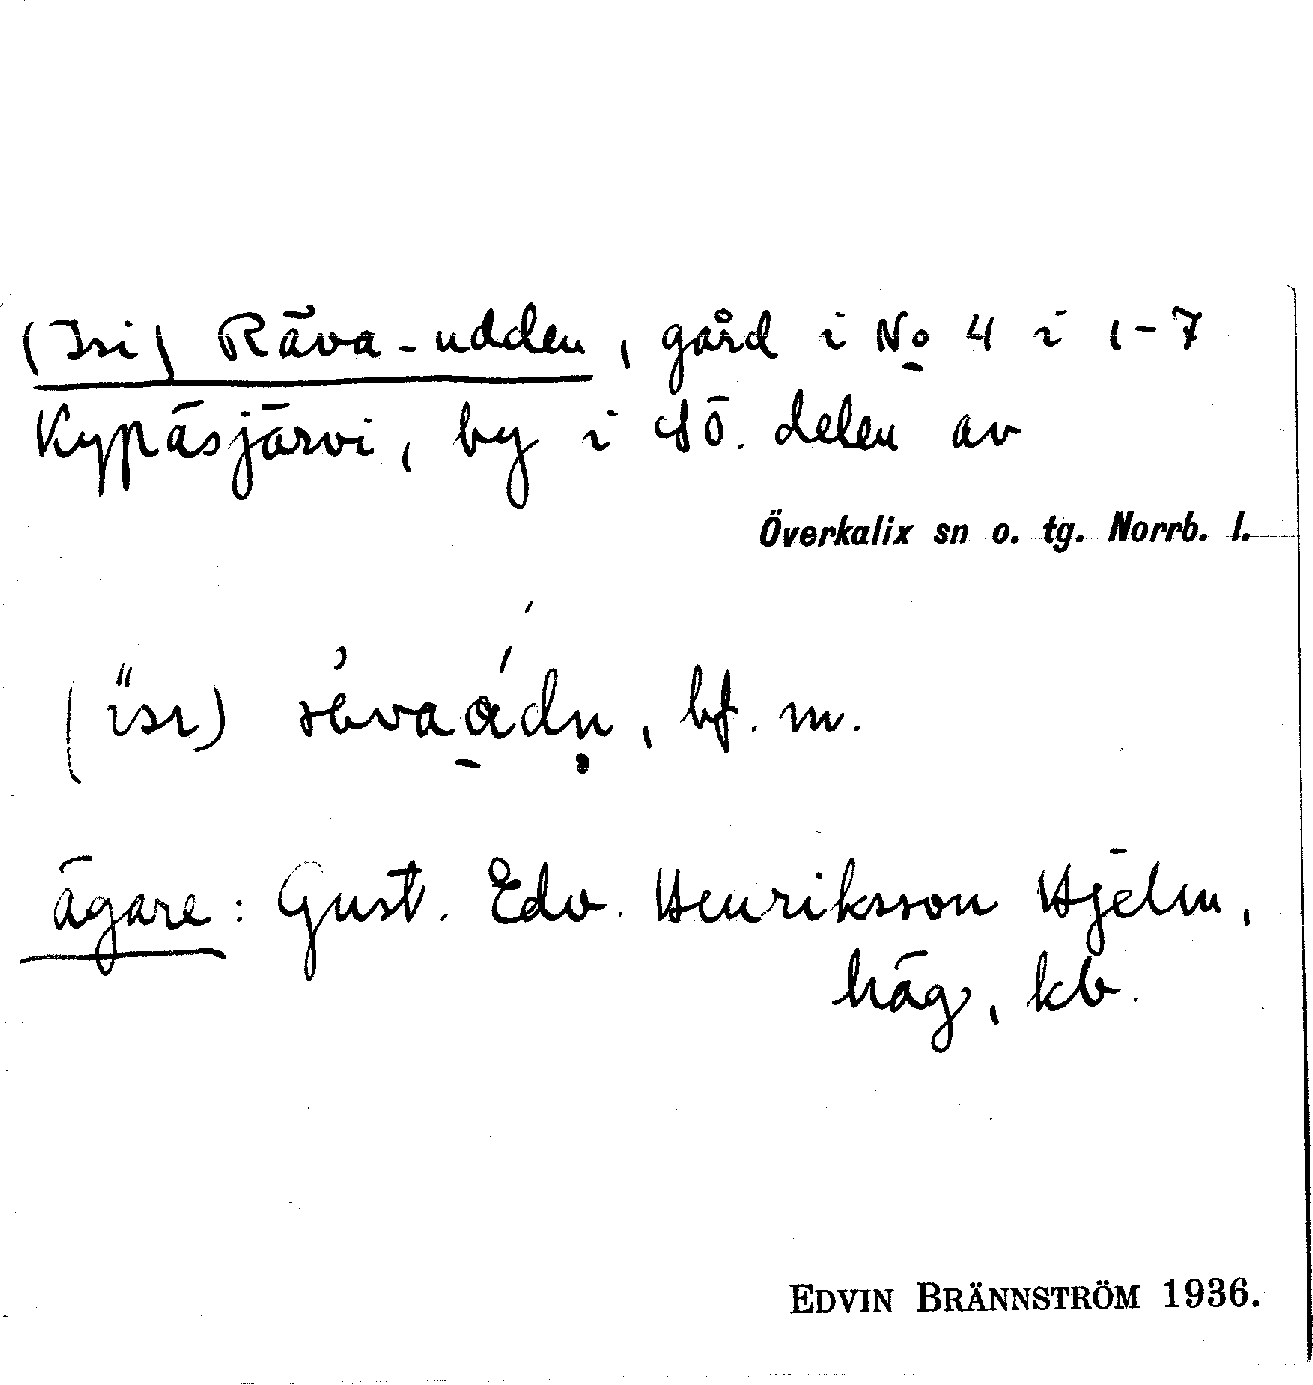 (Isi) Räva-udden, gård i No 4 i 1-7
Kypäsjärvi, by i SÖ. delen av
Överkalix sn o. tg. Norrb. l.
bf. m.
ägare: Gust. Edv. Henriksson Hjelm,
häg, kb.
EDVIN BRÄNNSTRÖM 1936.